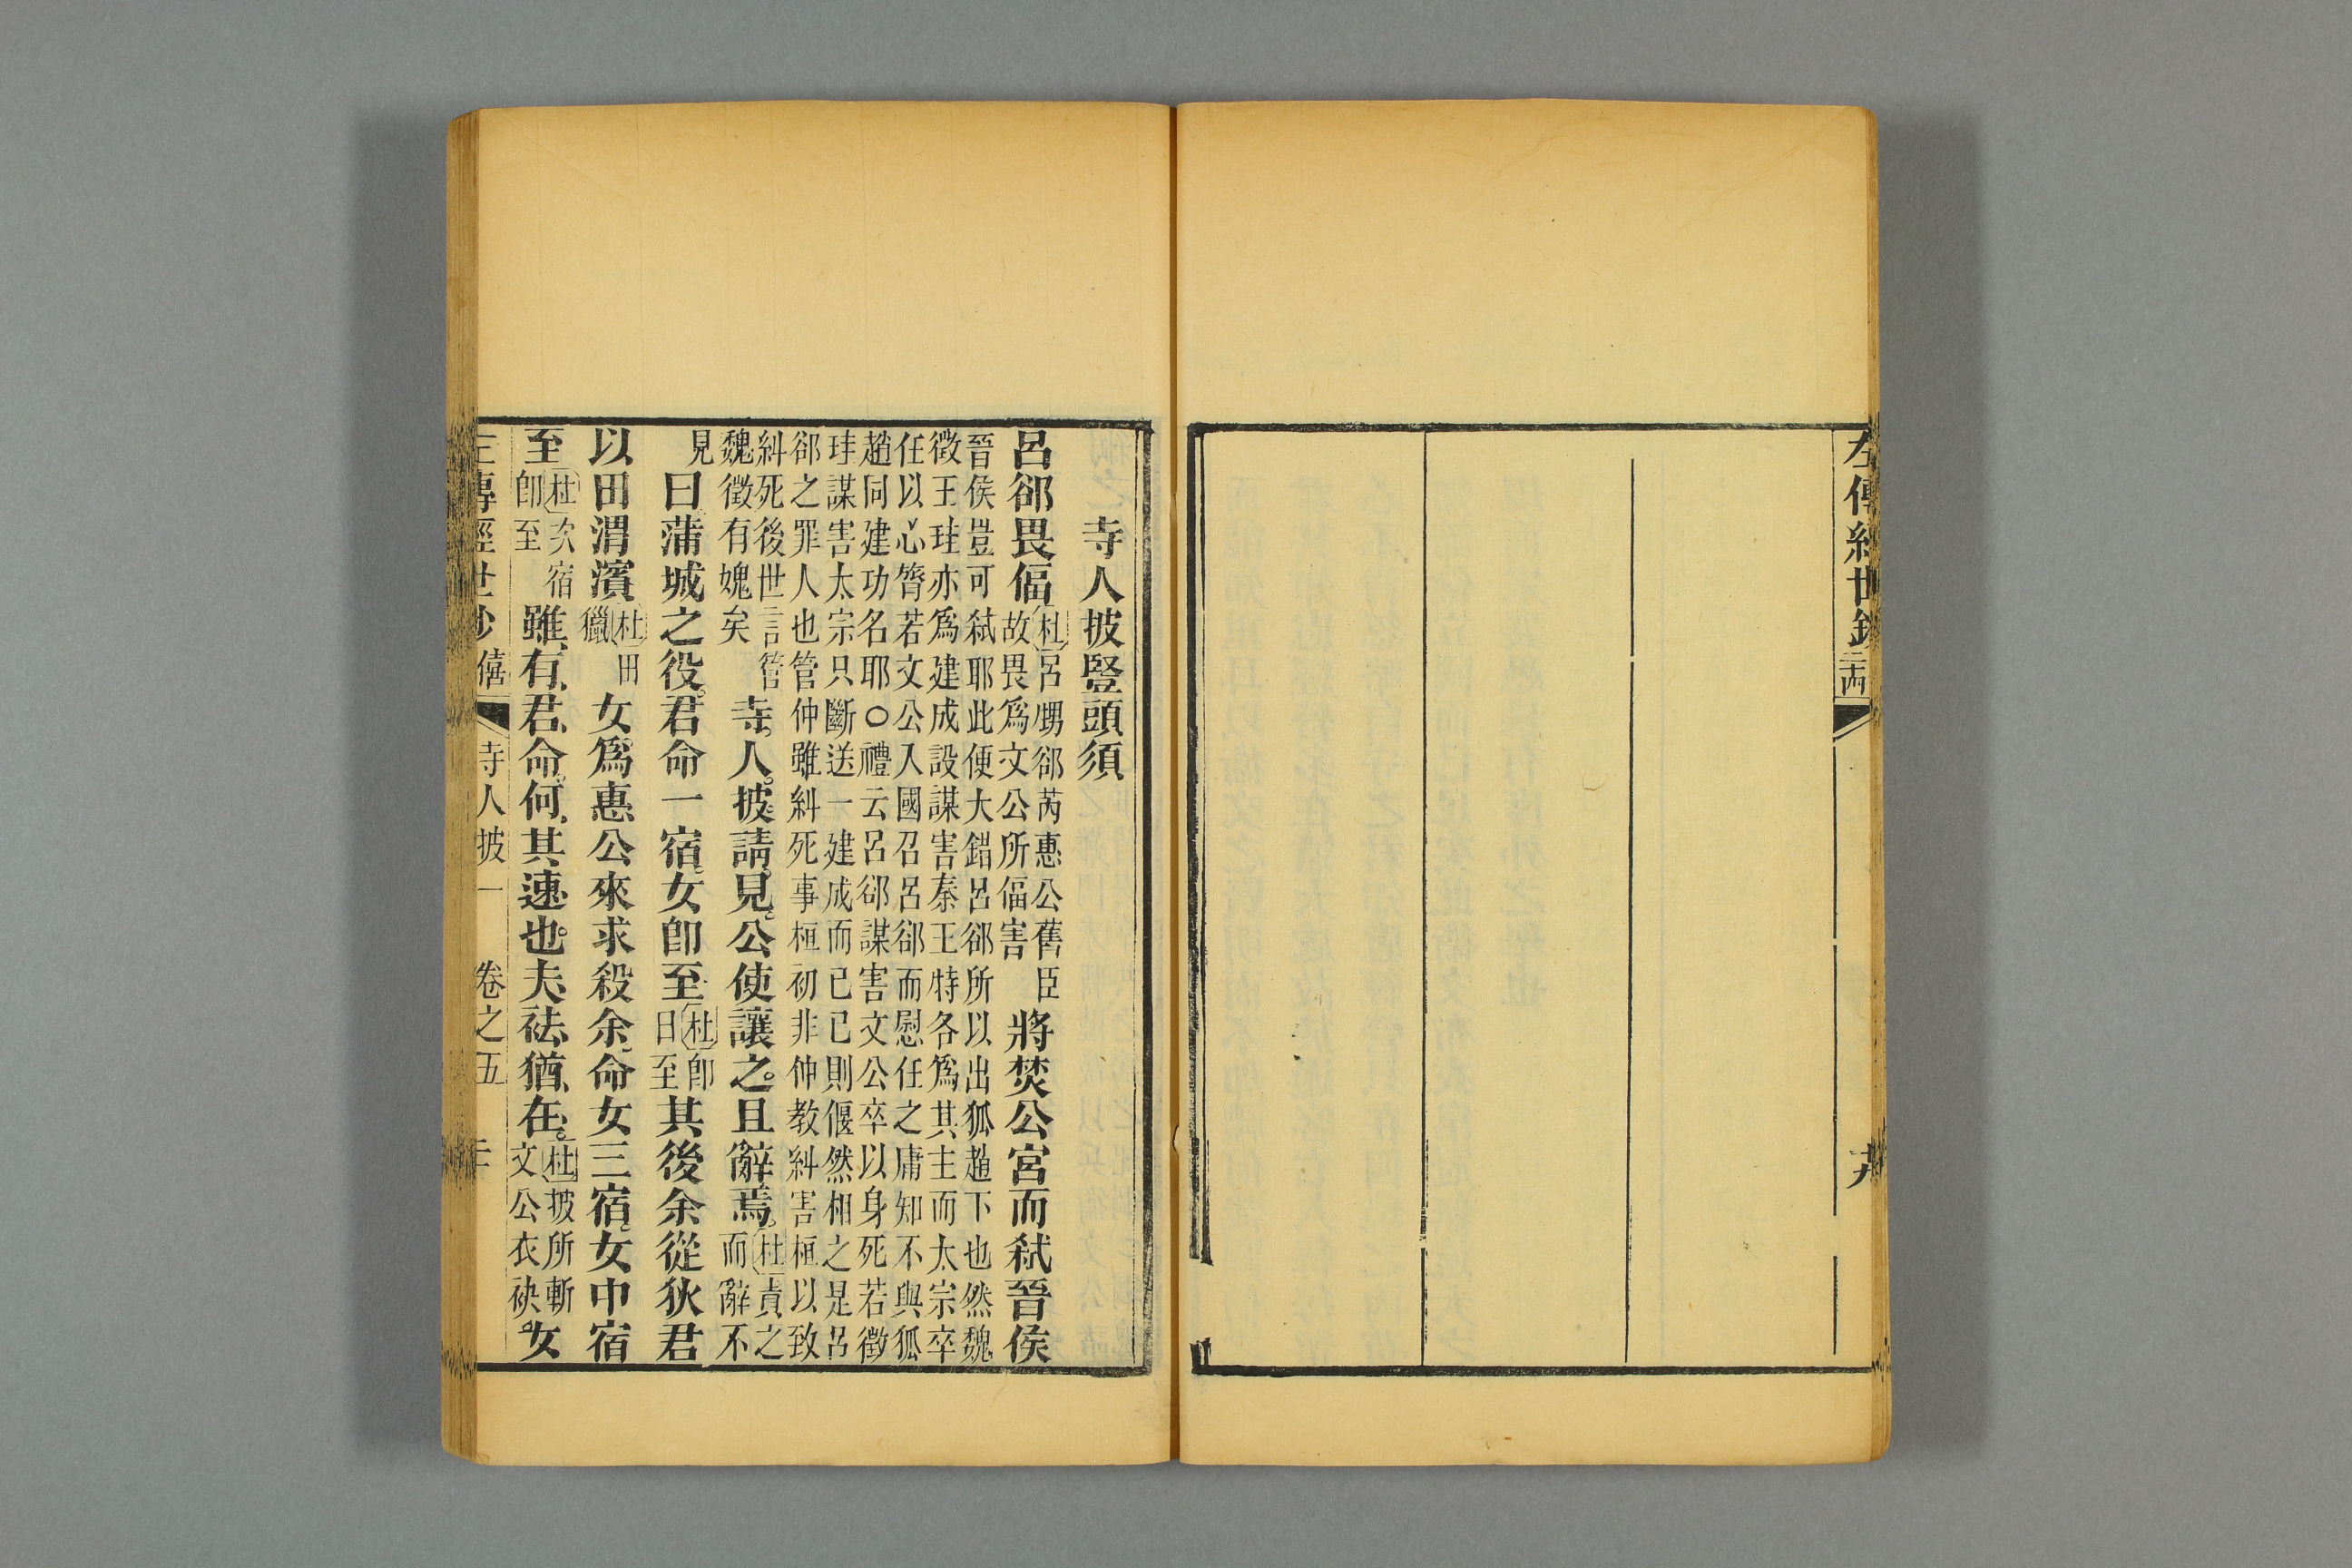 左傳經世鈔
寺人披豎頭須
呂郤畏偪
杜呂甥郤芮惠公舊臣
故畏爲文公所偪害
將焚公宮而弒晉侯
晉侯豈可弒耶此便大錯呂郤所以出狐趙下也然魏
徵王珪亦爲建成設謀害秦王特各爲其主而太宗卒
任以心膂若文公入國召呂郤而慰任之庸知不與狐
趙同建功名耶〇禮云呂郤謀害文公卒以身死若徵
珪謀害太宗只斷送一建成而已已則偃然相之是呂
郤之罪人也管仲雖糾死事桓初非仲教糾害桓以致
糾死後世言管
魏徵有媿矣
寺人披請見公使讓之且辭焉
杜責之
而辭不
見
曰蒲城之役君命一宿女卽至
杜卽
日至
其後余從狄君
以田渭濱
杜田
獵
女爲惠公來求殺余命女三宿女中宿
至
杜次宿
卽至
雖有君命何其速也夫袪猶在
杜披所斬
文公衣袂
女
左傳經世鈔 僖 寺人披一 卷之五